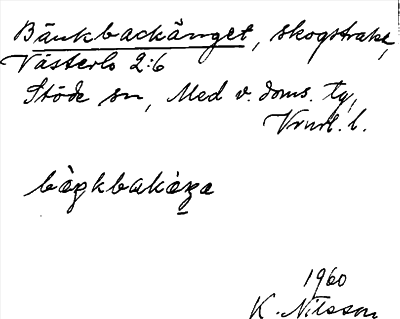 Bänkbackänget, skogstrakt,
Västerlo 2:6
Stöde sn, Med v. doms. tg,
Vrnrl. l.
1960
K. Nilsson